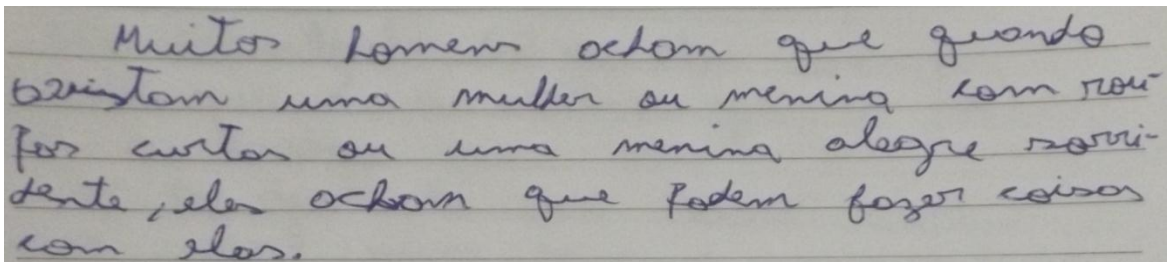 Muitos homens acham que quando
avistam uma mulher ou menina com rou-
pas curtas ou uma menina alegre sorri-
dente, eles acham que podem fazer coisas
com elas.